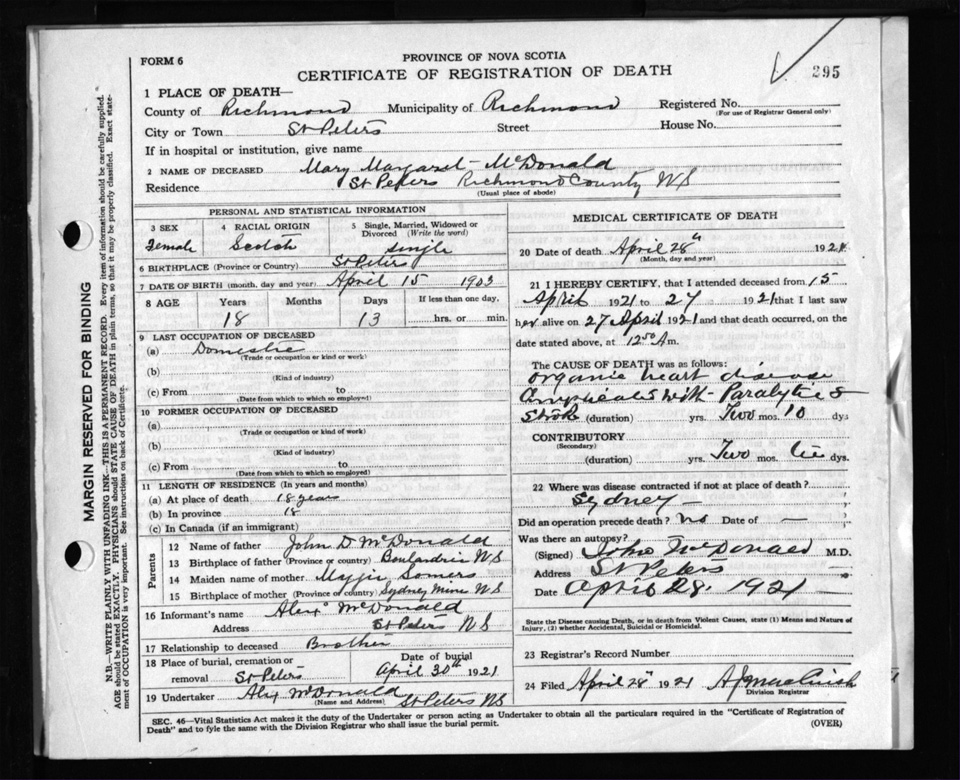 FORM 6
PROVINCE OF NOVA SCOTIA
CERTIFICATE OF REGISTRATION OF DEATH
295
1 PLACE OF DEATH—
County of Richmond Municipality of Richmond Registered No.
(For use of Registrar General only)
City or Town St Peters Street House No.
If in hospital or institution, give name
2 NAME OF DECEASED Mary Margaret McDonald
Residence St Peters Richmond County NS
(Usual place of abode)
MARGIN RESERVED FOR BINDING
N.B.—WRITE PLAINLY WITH UNFADING INK—THIS IS A PERMANENT RECORD. Every item of information should be carefully supplied.
AGE should be stated EXACTLY. PHYSICIANS should STATE CAUSE OF DEATH in plain terms, so that it may be properly classified. Exact statement of OCCUPATION is very important. See instructions on back of Certificate.
PERSONAL AND STATISTICAL INFORMATION
3 SEX 4 RACIAL ORIGIN 5 Single, Married, Widowed or Divorced (Write the word)
Female Scotch single
6 BIRTHPLACE (Province or Country) St Peters
7 DATE OF BIRTH (month, day and year) April 15 1903
8 AGE Years Months Days If less than one day,
18 13 hrs. or min.
9 LAST OCCUPATION OF DECEASED
(a) Domestic
(Trade or occupation or kind of work)
(b)
(Kind of industry)
(c) From to
(Date from which to which so employed)
10 FORMER OCCUPATION OF DECEASED
(a)
(Trade or occupation or kind of work)
(b)
(Kind of industry)
(c) From to
(Date from which to which so employed)
11 LENGTH OF RESIDENCE (In years and months)
(a) At place of death 18 years
(b) In province 18
(c) In Canada (if an immigrant)
Parents
12 Name of father John D McDonald
13 Birthplace of father (Province or country) NS
14 Maiden name of mother Somers
15 Birthplace of mother (Province or country) Sydney Mines NS
16 Informant's name Alex McDonald
Address St Peters NS
17 Relationship to deceased Brother
18 Place of burial, cremation or removal St Peters
Date of burial
April 30th 1921
19 Undertaker Alex McDonald St Peters NS
(Name and Address)
MEDICAL CERTIFICATE OF DEATH
20 Date of death April 28th 1921
(Month, day and year)
21 I HEREBY CERTIFY, that I attended deceased from 15
April 1921 to 27 1921 that I last saw
her alive on 27 April 1921 and that death occurred, on
date stated above, at 12 50 Am.
The CAUSE OF DEATH was as follows:
Organic heart disease
Complicated with Paralytic
Stroke (duration) yrs. Two mos. 10 dys
CONTRIBUTORY
(Secondary)
(duration) yrs. Two mos. dys.
22 Where was disease contracted if not at place of death?
Sydney —
Did an operation precede death? No Date of —
Was there an autopsy?
(Signed) John McDonald M.D.
Address St Peters
Date April 28. 1921
State the Disease causing Death, or in death from Violent Causes, state (1) Means and Nature of Injury, (2) whether Accidental, Suicidal or Homicidal.
23 Registrar's Record Number
24 Filed April 28th 1921
Division Registrar
SEC. 46—Vital Statistics Act makes it the duty of the Undertaker or person acting as Undertaker to obtain all the particulars required in the "Certificate of Registration of
Death" and to fyle the same with the Division Registrar who shall issue the burial permit.
(OVER)